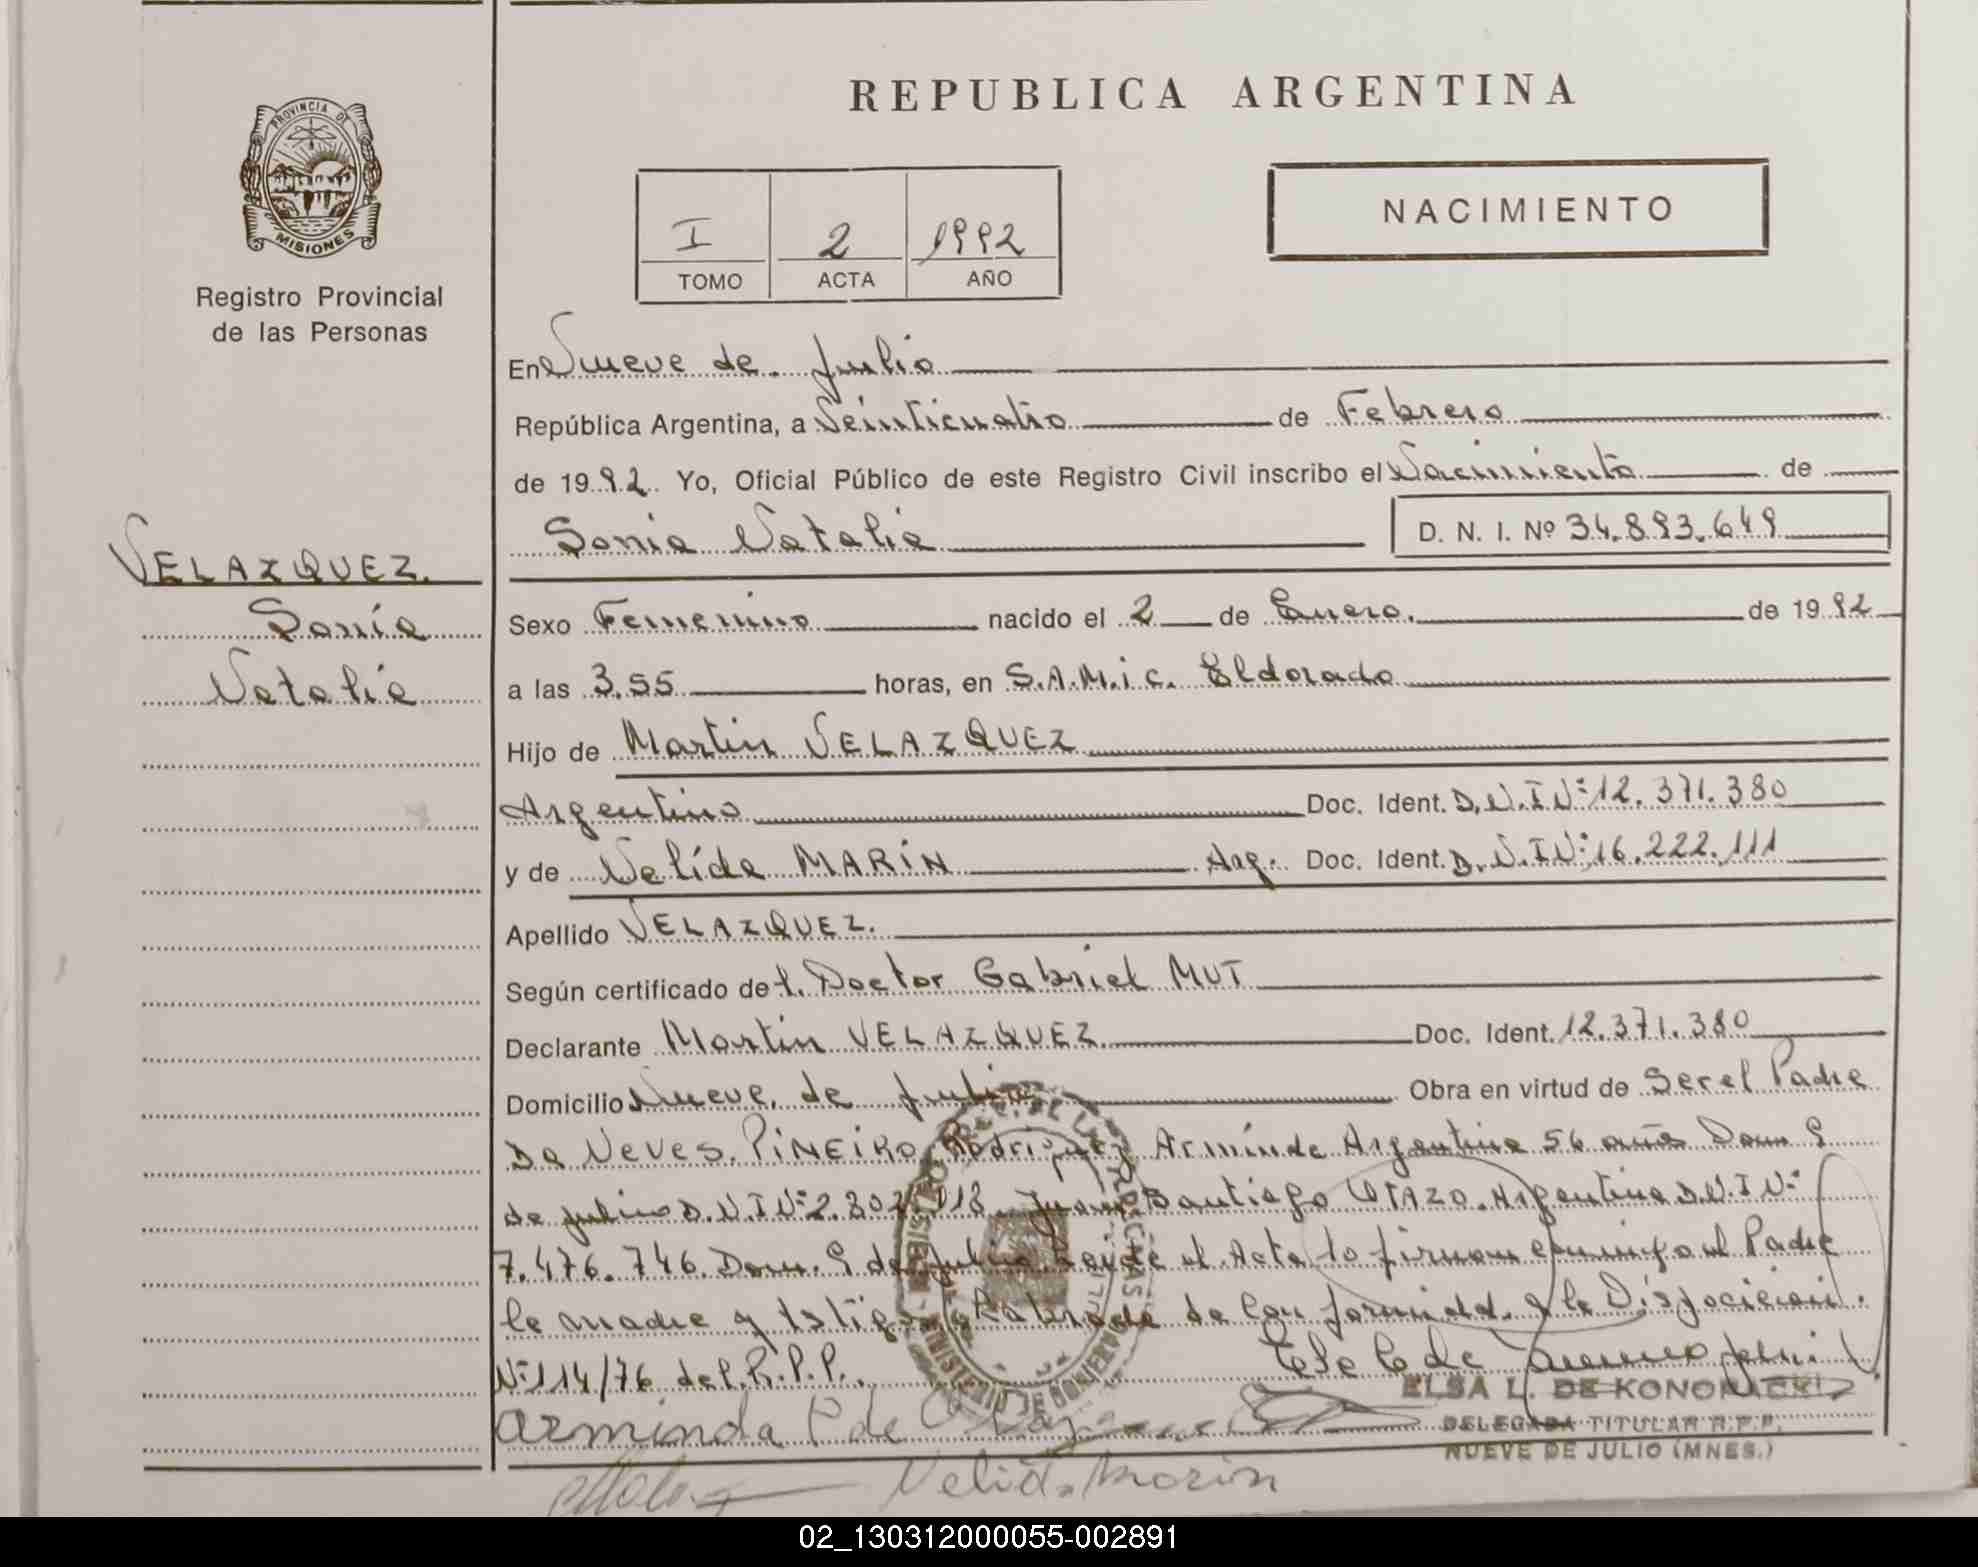 REPUBLICA ARGENTINA
PROVINCIA DE
MISIONES
Registro Provincial
de las Personas
I 2 1992
TOMO ACTA AÑO
NACIMIENTO
En Nueve de Julio
República Argentina, a Veinticuatro de Febrero
de 1992. Yo, Oficial Público de este Registro Civil inscribo el Nacimiento de
Sonia Natalia D. N. I. Nº 34.893.649
VELAZQUEZ.
Sonia
Natalia
Sexo Femenino nacido el 2 de Enero. de 1992
a las 3.55 horas, en S.A.M.i c. Eldorado
Hijo de Martin VELAZQUEZ
Argentino Doc. Ident. D.N.I Nº 12.371.380
y de Nelida MARiN Arg. Doc. Ident. D.N.I Nº 16.222.111
Apellido VELAZQUEZ.
Según certificado del Doctor Gabriel MUT
Declarante Martin VELAZQUEZ Doc. Ident. 12.371.380
Domicilio Nueve de Julio Obra en virtud de Ser el Padre
Da Neves. PiNEiRO Rodriguez Arminda Argentina 56 años Dom 9
de julio D.N.I Nº 2.302.918 Juan Bautista OTAZO. Argentino D.N.I Nº
7.476.746. Dom. 9 de Julio el Acta lo firman conmigo el Padre
la madre y de Conformidad a la
Nº 114/76 del R.P.P.
ELSA L. DE KONOPACKI
DELEGADA TITULAR R.P.P.
NUEVE DE JULIO (MNES.)
Arminda P de
Nelida Marin
02_130312000055-002891